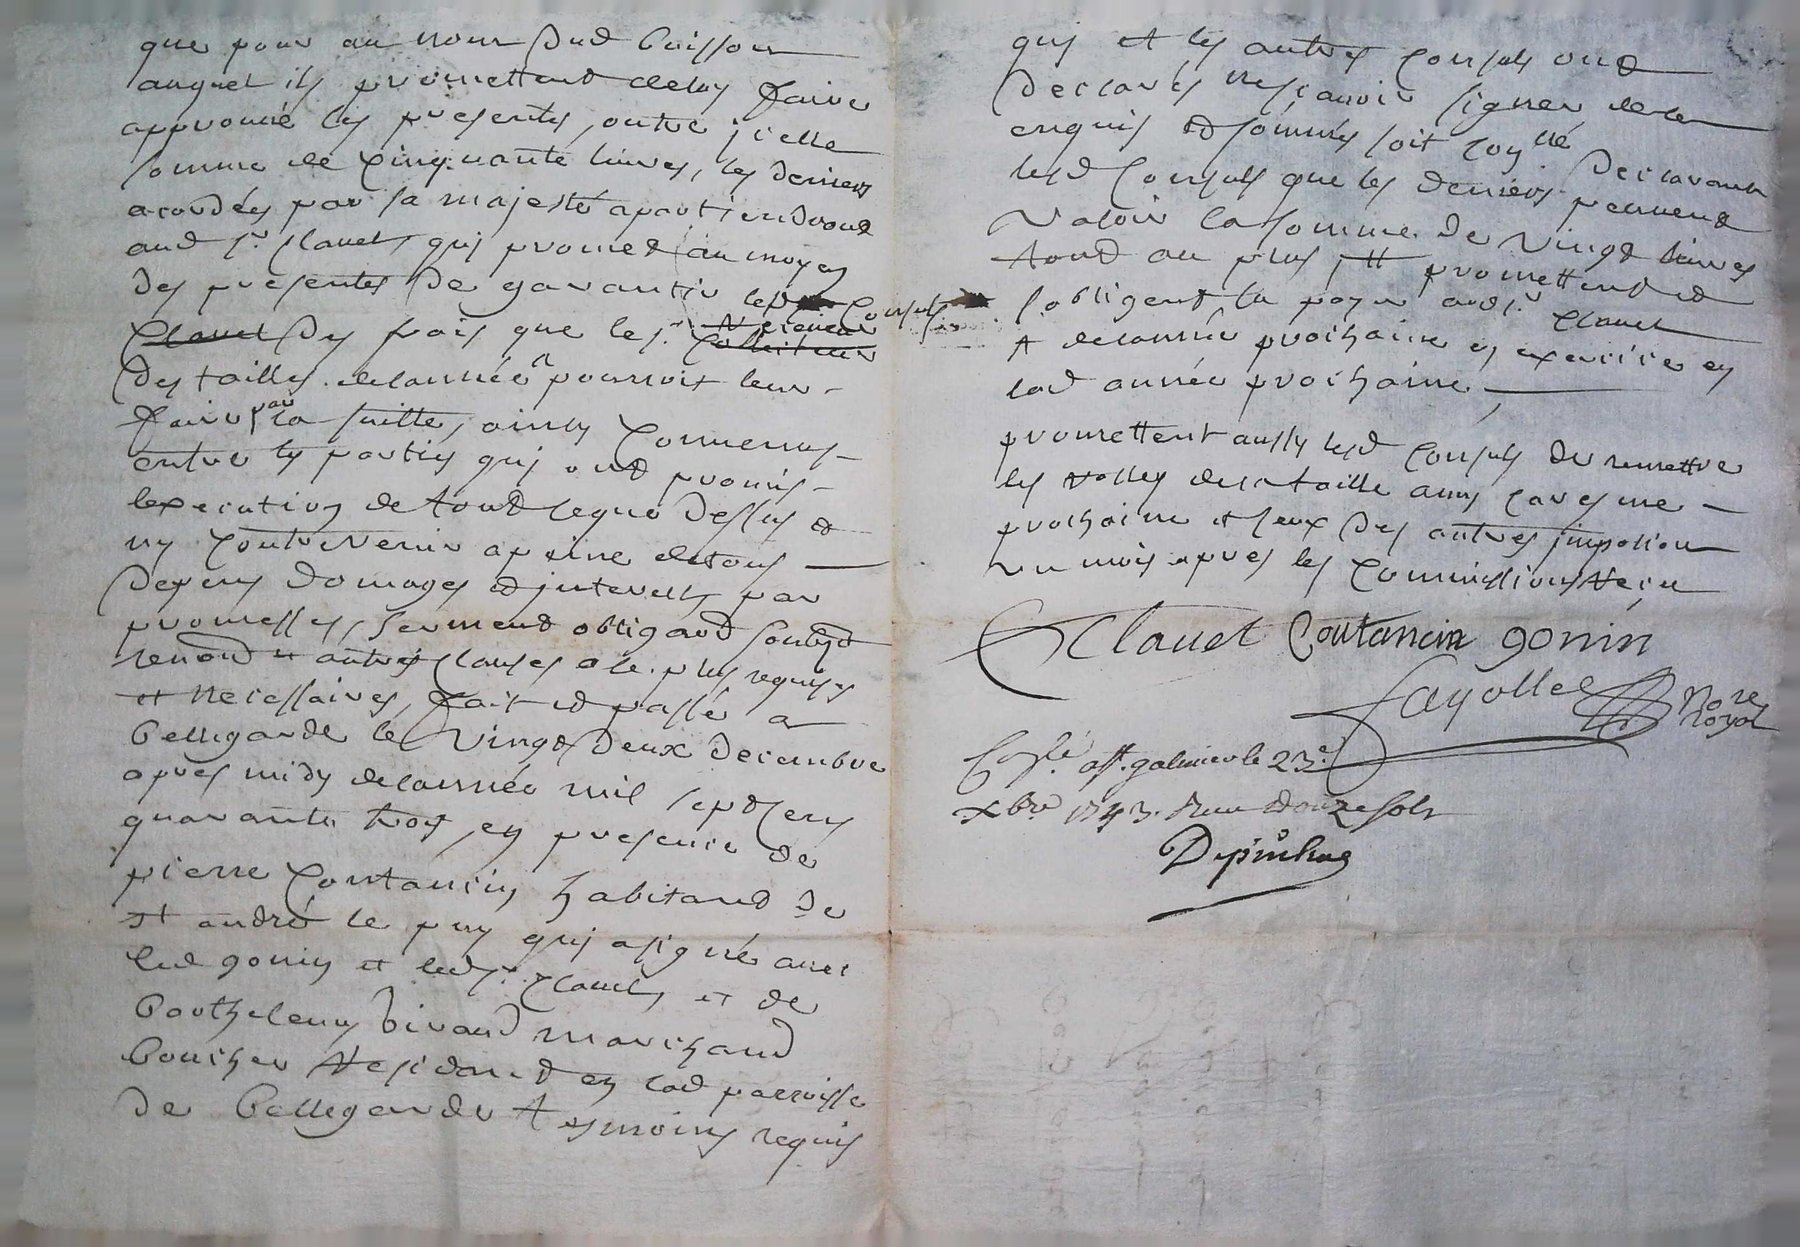 que pour au nom dud buisson
auquel ils promettent deluy faire
approuvé les presentes, outre jcelle
somme de Cinquante livres, les deniers
acordées par sa majesté apartiendront
aud sr. Clauet, quj promet au moyen
des presentes de garantir lesd Consuls
Clauet des frais que le sr. Receveur Collecteur
des tailles delannée pourroit leur
faire par la suitte, ainsy Convenus
entre les parties quj ont promis
lexecution de tout ceque dessus et
ny Contrevenir apeine detous
depens domages et jnterests par
promesses, serment obligaõn soubzõn
renonõn et autres Clauses ale plus requises
et necessaires, fait et passé a
Bellegarde le Vingt deux decembre
apres midy delannée mil septCens
quarante trois, en presence de
pierre Contancin habitant de
st andré le puy quj asigné avec
led gonin et ledsr. Clauet, et de
Barthelemy birand marchand
boucher Residant en lad parroisse
de Bellegarde tesmoins requis
quj et les autres Consuls ont
declarés nesçavoir signer dece
enquis et sommés soit Conllé
lesd Consuls que les deniers declarant peuvent
valoir la somme de vingt livres
tout au plus promettent et
sobligent la payer aud sr. Clauet
delannée prochaine en exercice en
lad année prochaine
promettent aussy lesd Consuls de remettre
les rolles dela taille amy caresme
prochaine et Ceux des autres jmposition
un mois apres les Commissions Reçu
Clauet Contancin gonin
fayolle Nore royal
Conlé a st. galmier le 23e
xbre 1743. Reçu douze sols